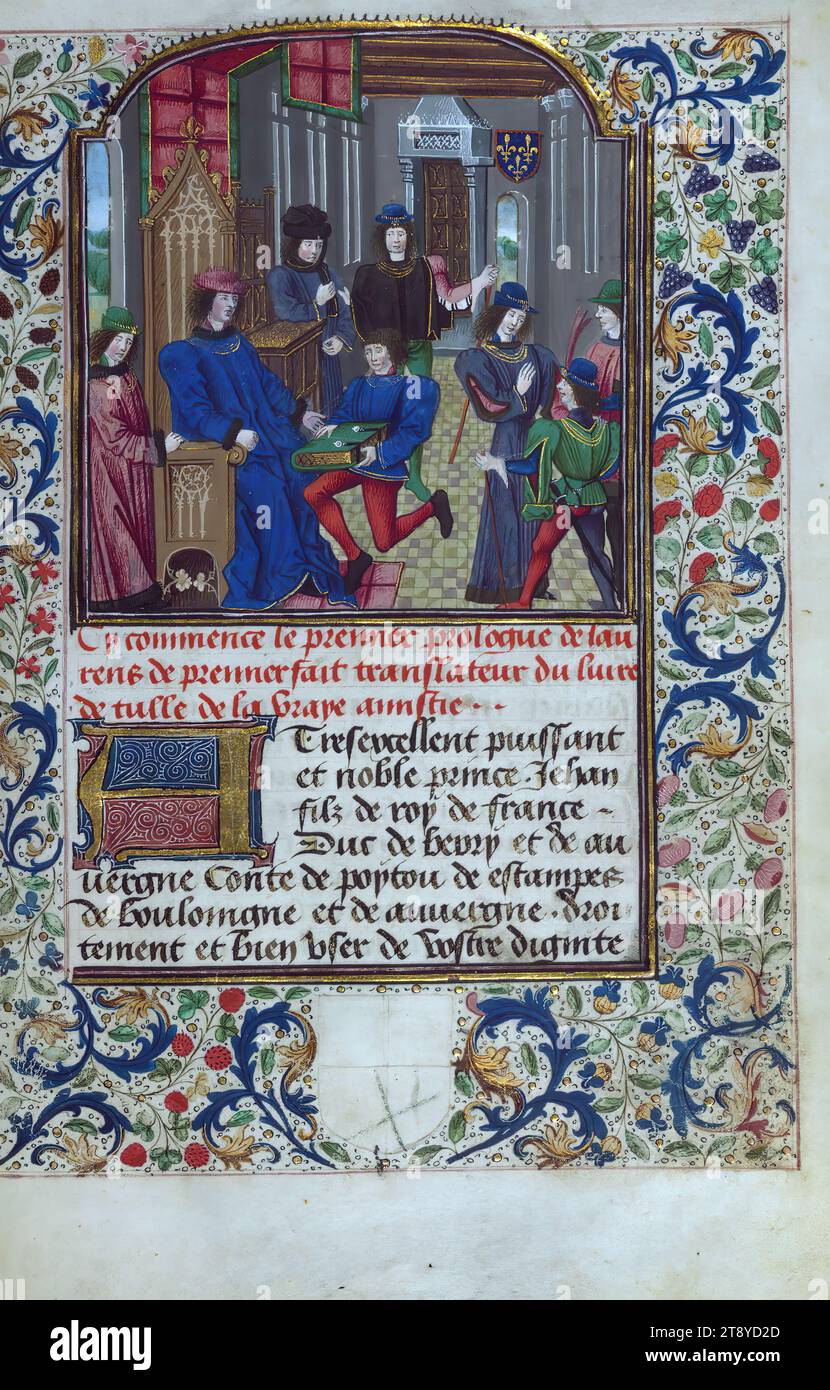 Cy commence le premier prologue de lau
rens de premierfait translateur du liure
de tulle de la vraye amistie
A Tresexcellent puissant
et noble prince. Jehan
filz de roy de france
Duc de berry et de au
uergne Conte de poytou de estampes
de boulongne et de auuergne. droi
tement et bien vser de vostre dignite
alamy
Image ID: 2T8YD2D
www.alamy.com